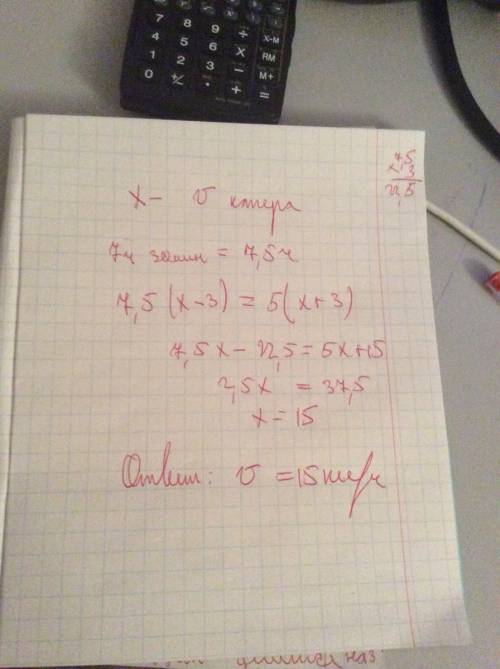 7 8 9 ÷ X-M
4 5 6 X RM
1 2 3 − M+
0 +/- . + =
7,5
x 3
22,5
x – v катера
7ч 30мин = 7,5ч
7,5(x-3) = 5(x+3)
7,5x - 22,5 = 5x+15
2,5x = 37,5
x = 15
Ответ: v = 15 км/ч